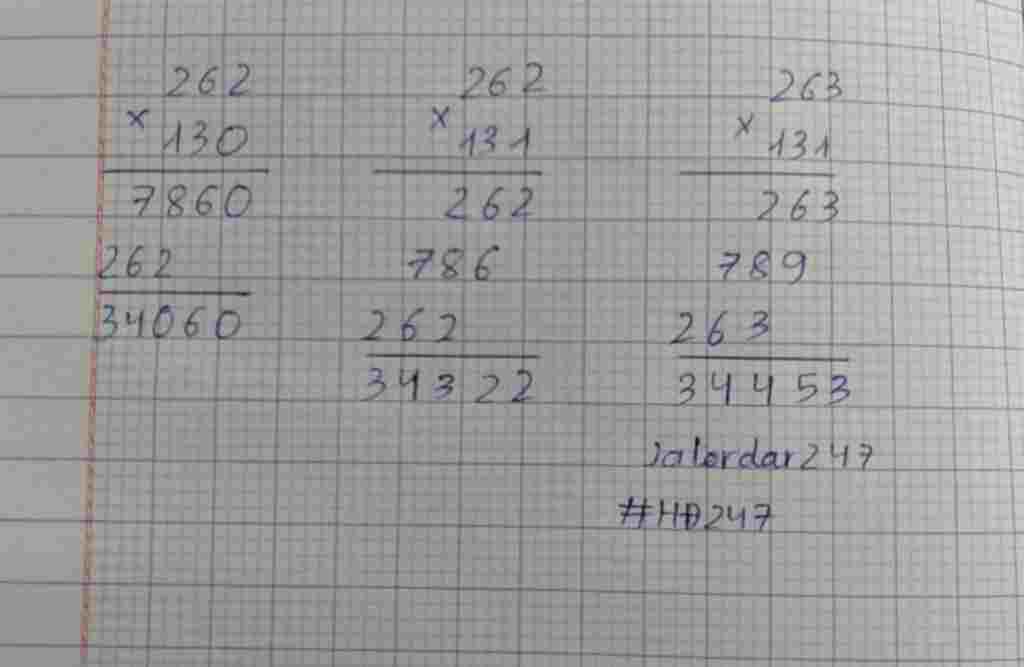 262
× 130
7860
262
34060
262
× 131
262
786
262
34322
263
× 131
263
789
263
34453
jalordar247
#HĐ247